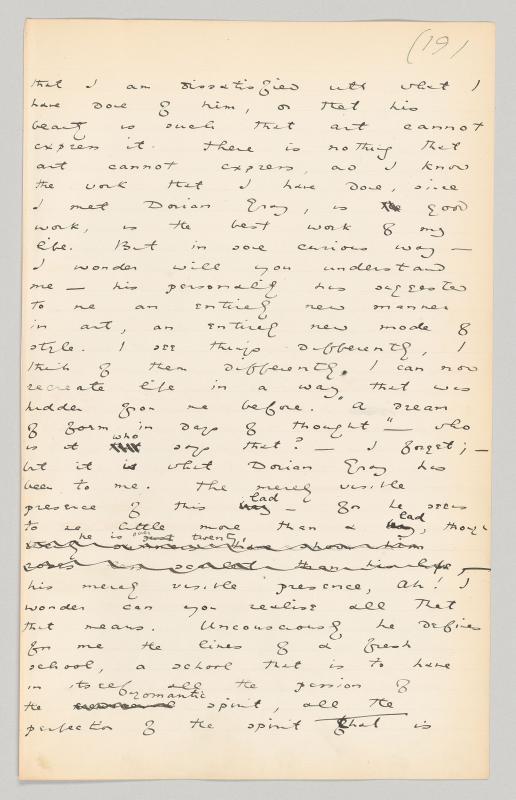 (19)
that I am dissatisfied with what I
have done of him, or that his
beauty is such that art cannot
express it. There is nothing that
art cannot express, and I know
the work that I have done, since
I met Dorian Gray, is the good
work, is the best work of my
life. But in some curious way —
I wonder will you understand
me — his personality has suggested
to me an entirely new manner
in art, an entirely new mode of
style. I see things differently, I
think of them differently. I can now
recreate life in a way that was
hidden from me before. "A dream
of form in days of thought" — who
is it who says that? — I forget; —
but it is what Dorian Gray has
been to me. The merely visible
presence of this lad — for he seems
to me little more than a lad, though
he is over twenty,
his merely visible presence, Ah! I
wonder can you realise all that
that means. Unconsciously he defines
for me the lines of a fresh
school, a school that is to have
in itself all the passion of
the romantic spirit, all the
perfection of the spirit that is